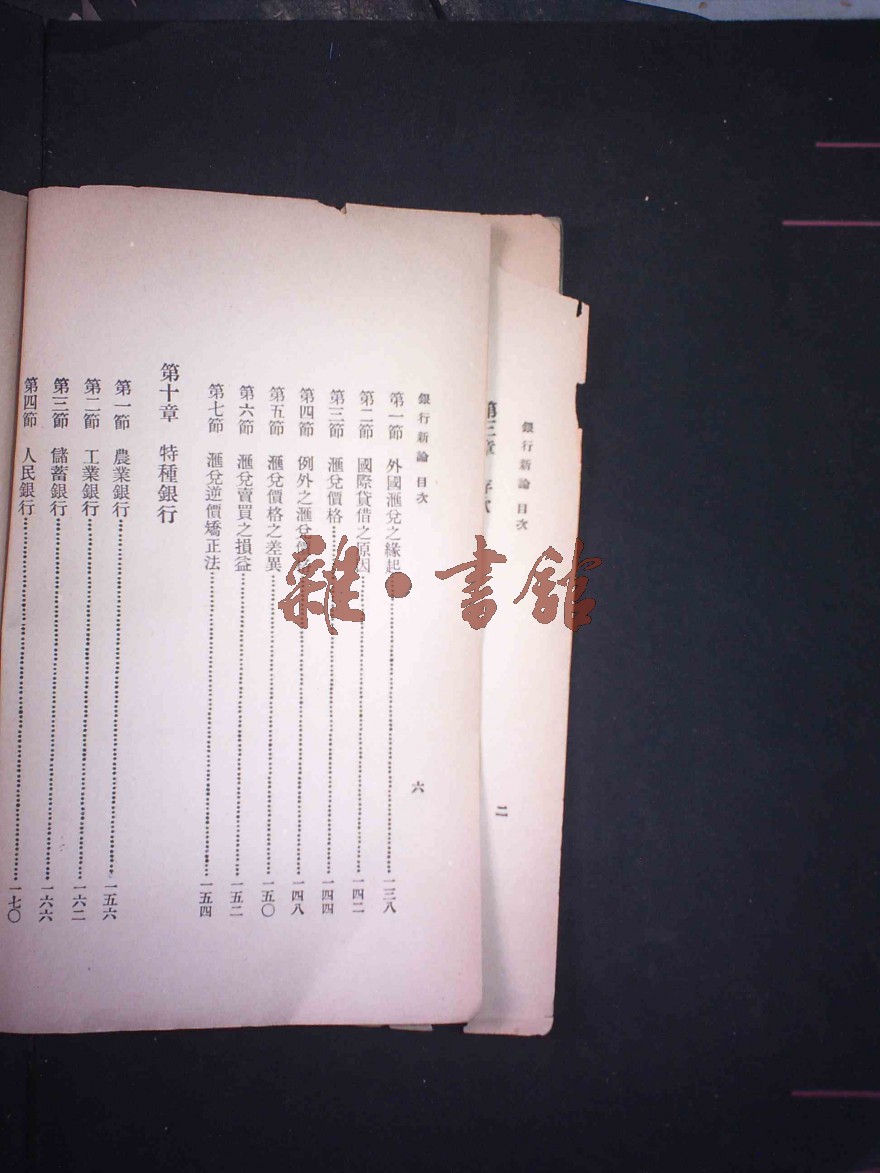 銀行新論 目次
二
銀行新論 目次
六
第一節 外國滙兌之緣起 一三八
第二節 國際貸借之原因 一四二
第三節 滙兌價格 一四四
第四節 例外之滙兌 一四八
第五節 滙兌價格之差異 一五〇
第六節 滙兌賣買之損益 一五二
第七節 滙兌逆價矯正法 一五四
第十章 特種銀行
第一節 農業銀行 一五六
第二節 工業銀行 一六二
第三節 儲蓄銀行 一六六
第四節 人民銀行 一七〇
雜·書館